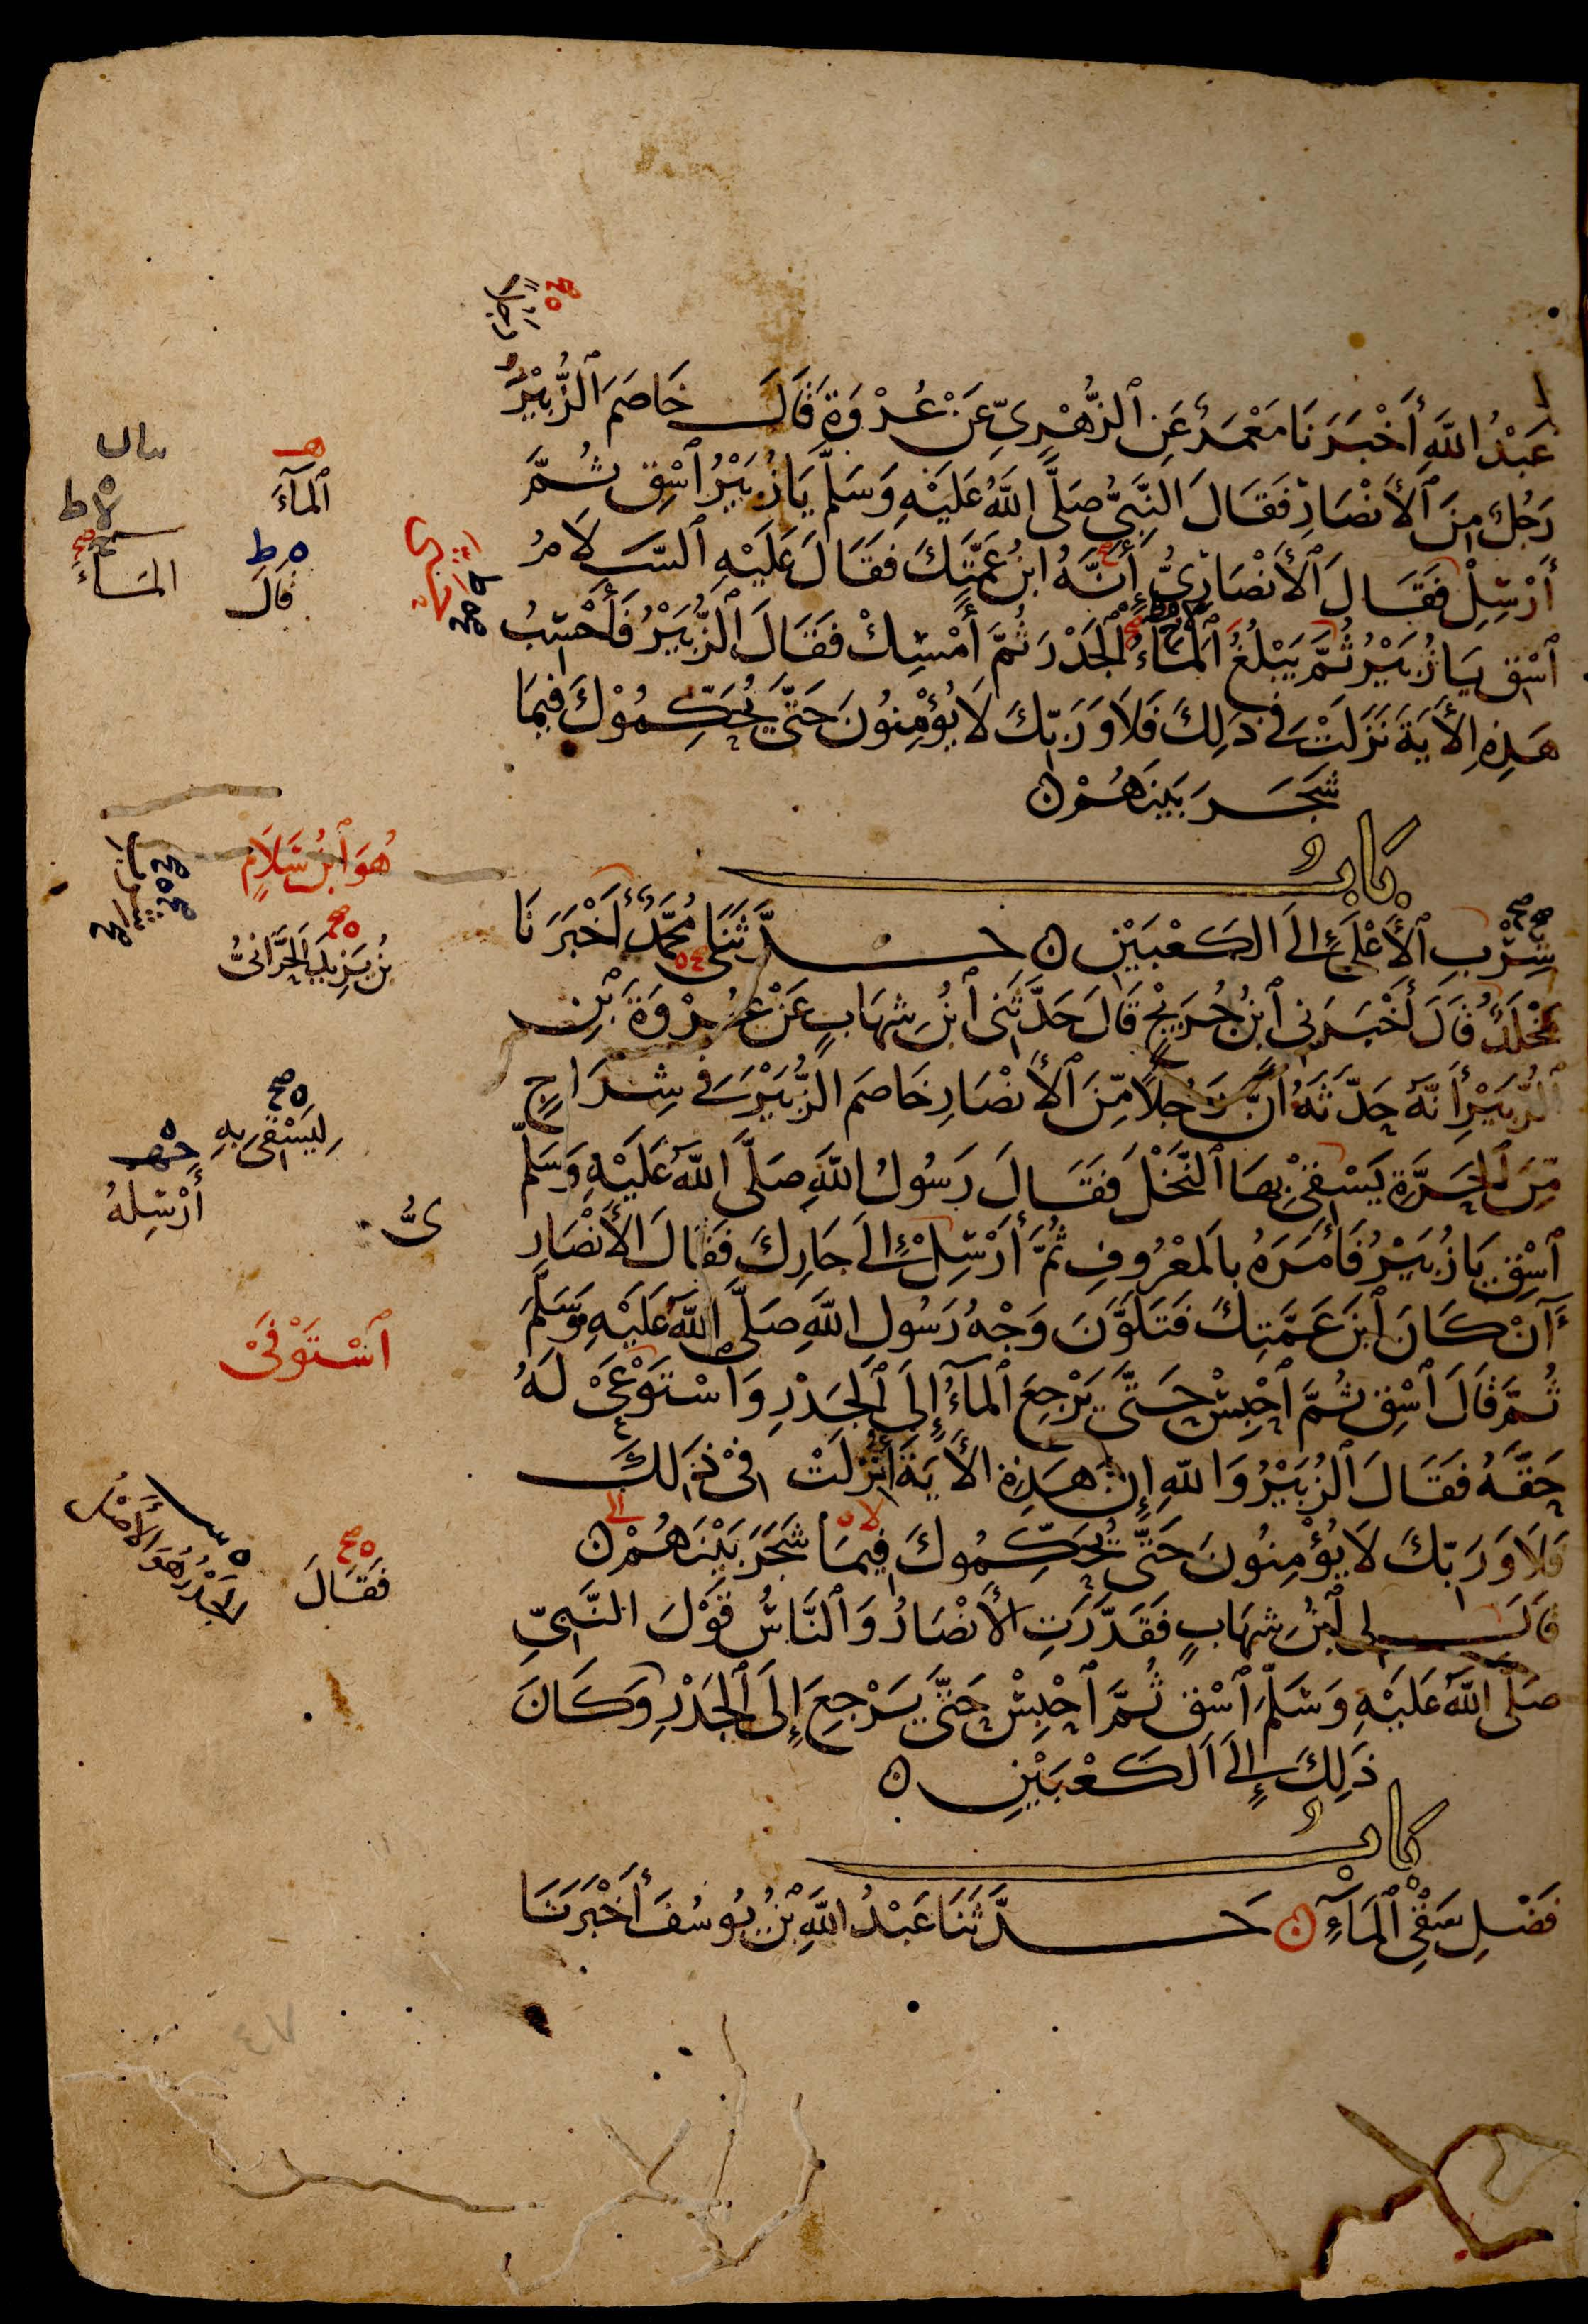 رَجُلًا
عَبْدُ اللَّهِ أَخْبَرَنَا مَعْمَرٌ عَنِ ٱلزُّهْرِيِّ عَنْ عُرْوَةَ قَالَ خَاصَمَ الزُّبَيْرُ
رَجُلٌ مِنَ ٱلأَنْصَارِ فَقَالَ النَّبِيُّ صَلَّى اللَّهُ عَلَيْهِ وَسَلَّمَ يَا زُبَيْرُ ٱسْقِ ثُمَّ
أَرْسِلْ فَقَالَ ٱلأَنْصَارِيُّ إِنَّهُ ابْنُ عَمَّتِكَ فَقَالَ عَلَيْهِ ٱلسَّلَامُ
ٱسْقِ يَا زُبَيْرُ ثُمَّ يَبْلُغُ ٱلْمَاءُ ٱلْجَدْرَ ثُمَّ أَمْسِكْ فَقَالَ ٱلزُّبَيْرُ فَأَحْسِبُ
هَذِهِ الْأَيَةَ نَزَلَتْ فِي ذَلِكَ فَلَا وَرَبِّكَ لَا يُؤْمِنُونَ حَتَّى يُحَكِّمُوْكَ فِيمَا
شَجَرَ بَيْنَهُمْ ن
بَابُ
شِرْبِ ٱلأَعْلَى إِلَى الكَعْبَيْنِ ن حَدَّثَنَا مُحَمَّدٌ أَخْبَرَنَا
مَخْلَدٌ قَالَ أَخْبَرَنِي ٱبْنُ جُرَيْجٍ قَالَ حَدَّثَنِي ٱبْنُ شِهَابٍ عَنْ عُرْوَةَ بْنِ
ٱلزُّبَيْرِ أَنَّهُ حَدَّثَهُ أَنَّ رَجُلًا مِّنَ ٱلأَنْصَارِ خَاصَمَ الزُّبَيْرَ فِي شِرَاجٍ
مِّنَ ٱلْحَرَّةِ يَسْقِي بِهَا ٱلنَّخْلَ فَقَالَ رَسُولُ اللَّهِ صَلَّى اللَّهُ عَلَيْهِ وَسَلَّمَ
ٱسْقِ يَا زُبَيْرُ فَأَمَرَهُ بِالمَعْرُوفِ ثُمَّ أَرْسِلْ إِلَى جَارِكَ فَقَالَ الأَنْصَارِ
أَنْ كَانَ ٱبْنَ عَمَّتِكَ فَتَلَوَّنَ وَجْهُ رَسُولِ اللَّهِ صَلَّى اللَّهُ عَلَيْهِ وَسَلَّمَ
ثُمَّ قَالَ ٱسْقِ ثُمَّ ٱحْبِسْ حَتَّى يَرْجِعَ ٱلْمَآءُ إِلَى ٱلْجَدْرِ وَاسْتَوْعَى لَهُ
حَقَّهُ فَقَالَ ٱلزُّبَيْرُ وَاللَّهِ إِنَّ هَذِهِ الأَيَةَ أُنْزِلَتْ فِيْ ذَلِكَ
فَلَا وَرَبِّكَ لَا يُؤْمِنُونَ حَتَّى يُحَكِّمُوكَ فِيمَا شَجَرَ بَيْنَهُمْ ن
قَالَ لِي ٱبْنُ شِهَابٍ فَقَدَّرَتِ الأَنْصَارُ وَٱلنَّاسُ قَوْلَ النَّبِيِّ
صَلَّى اللَّهُ عَلَيْهِ وَسَلَّمَ ٱسْقِ ثُمَّ ٱحْبِسْ حَتَّى يَرْجِعَ إِلَى ٱلْجَدْرِ وَكَانَ
ذَلِكَ إِلَى ٱلكَعْبَيْنِ ن
بَابُ
فَضْلِ سَقْيِ ٱلْمَآءِ ن حَدَّثَنَا عَبْدُ اللَّهِ بْنُ يُوسُفَ أَخْبَرَنَا
ٱلْمَآءَ
قَالَ
المَاءَ
هُوَ ٱبْنُ سَلَامٍ
بْنُ يَزِيدَ الحَرَّانِيُّ
لِيَسْقِيَ بِهِ
أَرْسِلْهُ
يُّ
ٱسْتَوْفَىْ
فَقَالَ
الجَدْرُ هُوَ الأَصْلُ